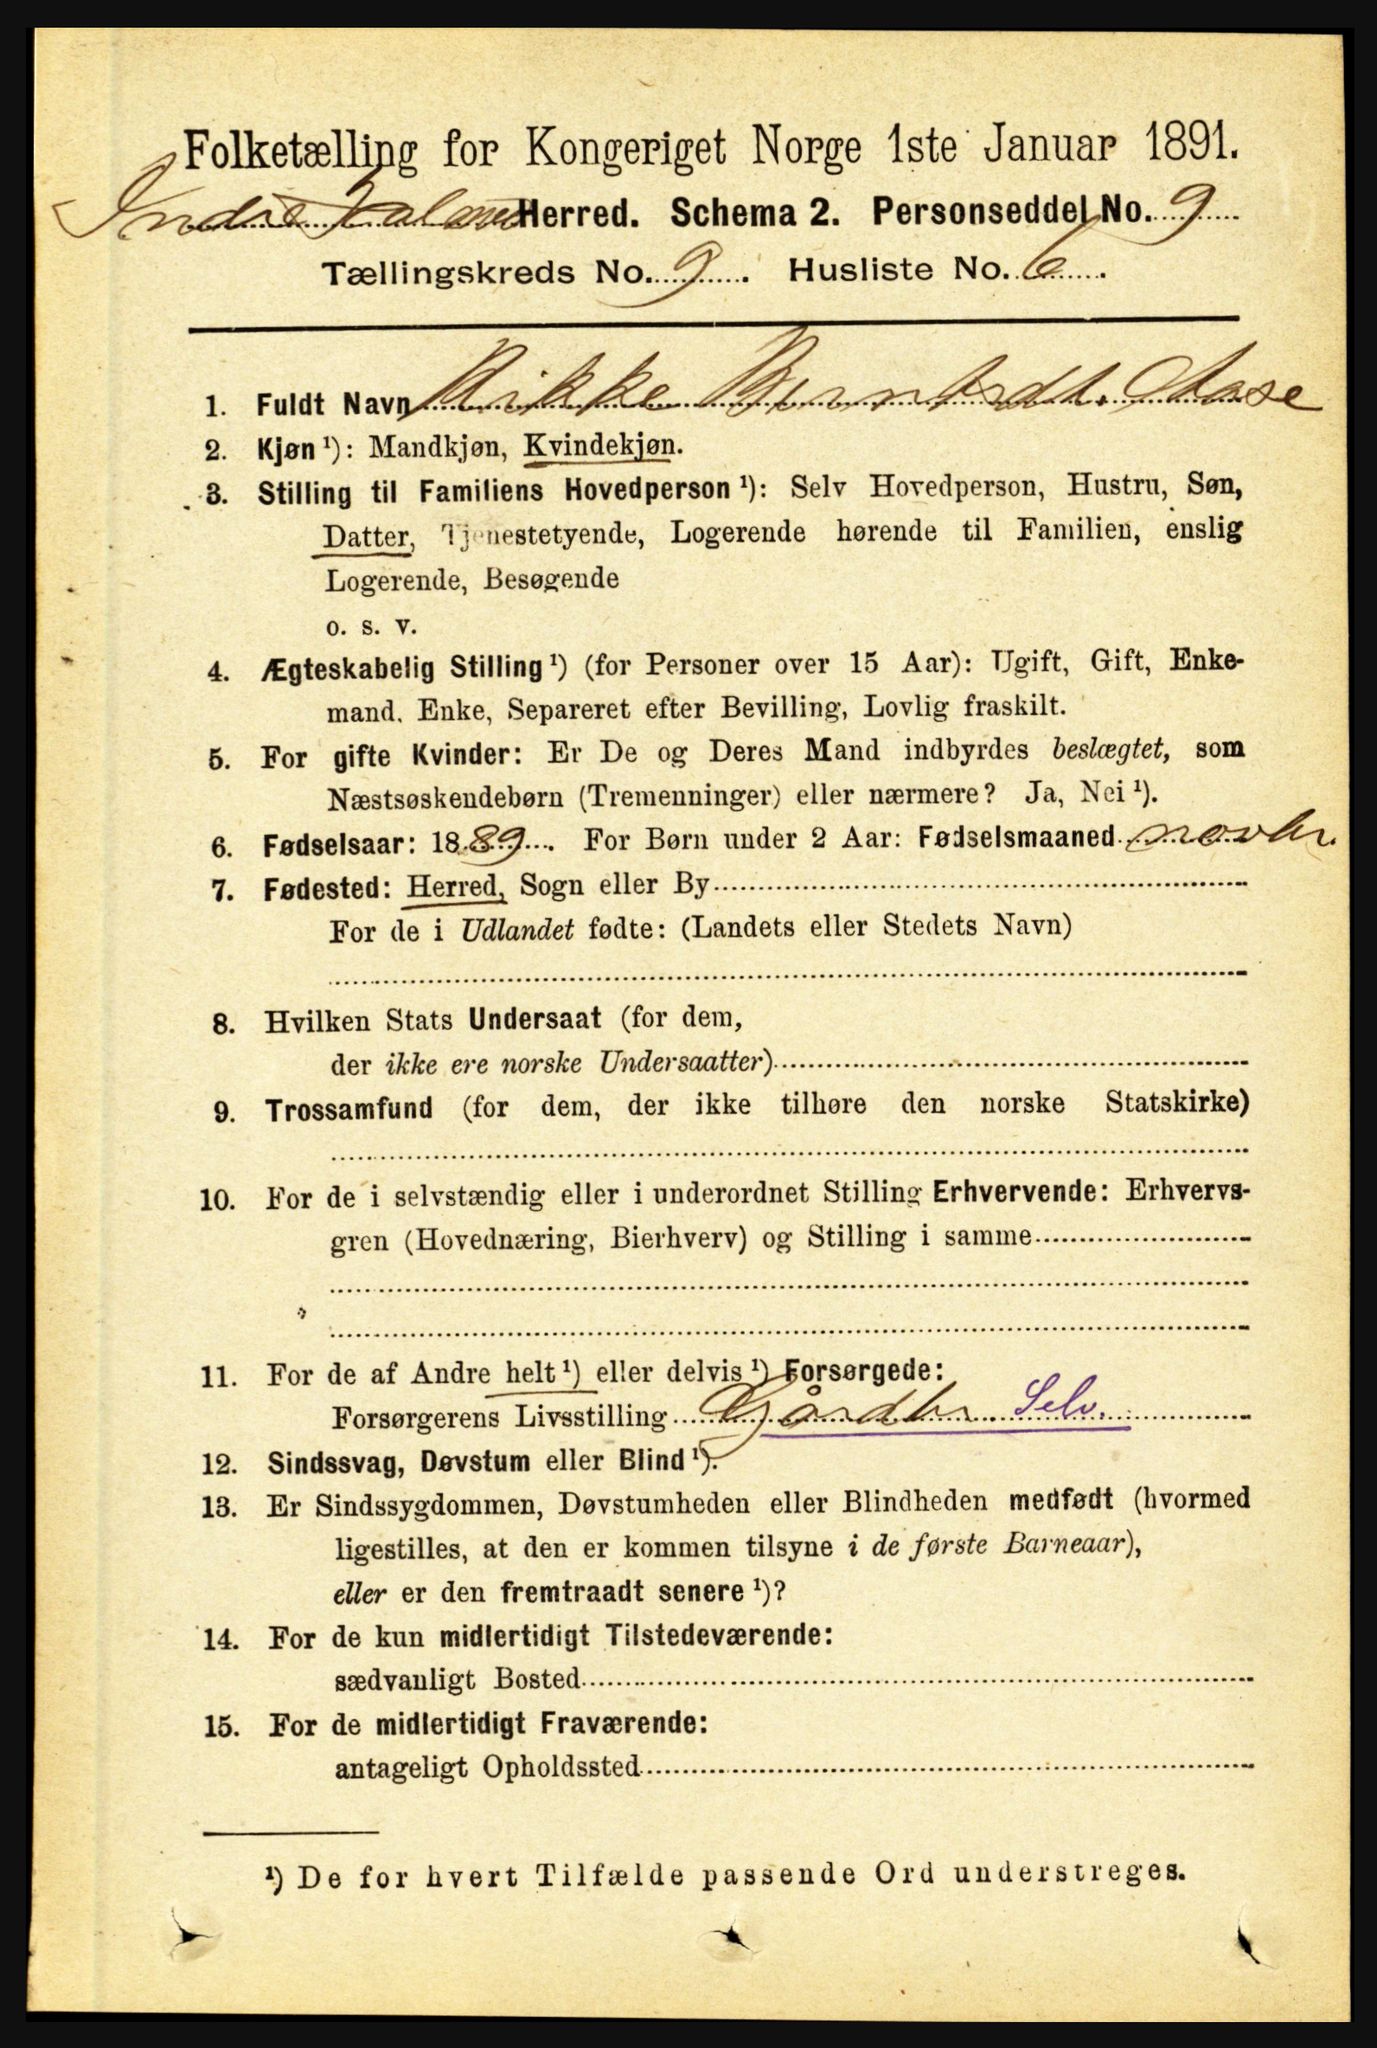 Folketælling for Kongeriget Norge 1ste Januar 1891.
Indre Holmedal Herred. Schema 2. Personseddel No. 9
Tællingskreds No. 9. Husliste No. 6.
1. Fuldt Navn Rikke Berntsdt. Aase
2. Kjøn ¹): Mandkjøn, Kvindekjøn.
3. Stilling til Familiens Hovedperson ¹): Selv Hovedperson, Hustru, Søn,
Datter, Tjenestetyende, Logerende hørende til Familien, enslig
Logerende, Besøgende
o. s. v.
4. Ægteskabelig Stilling ¹) (for Personer over 15 Aar): Ugift, Gift, Enke-
mand, Enke, Separeret efter Bevilling, Lovlig fraskilt.
5. For gifte Kvinder: Er De og Deres Mand indbyrdes beslægtet, som
Næstsøskendebørn (Tremenninger) eller nærmere? Ja, Nei ¹).
6. Fødselsaar: 1889. For Børn under 2 Aar: Fødselsmaaned novbr.
7. Fødested: Herred, Sogn eller By
For de i Udlandet fødte: (Landets eller Stedets Navn)
8. Hvilken Stats Undersaat (for dem,
der ikke ere norske Undersaatter)
9. Trossamfund (for dem, der ikke tilhøre den norske Statskirke)
10. For de i selvstændig eller i underordnet Stilling Erhvervende: Erhvervs-
gren (Hovednæring, Bierhverv) og Stilling i samme
11. For de af Andre helt ¹) eller delvis ¹) Forsørgede:
Forsørgerens Livsstilling Gårdbr. Selv.
12. Sindssvag, Døvstum eller Blind ¹).
13. Er Sindssygdommen, Døvstumheden eller Blindheden medfødt (hvormed
ligestilles, at den er kommen tilsyne i de første Barneaar),
eller er den fremtraadt senere ¹)?
14. For de kun midlertidigt Tilstedeværende:
sædvanligt Bosted
15. For de midlertidigt Fraværende:
antageligt Opholdssted
¹) De for hvert Tilfælde passende Ord understreges.